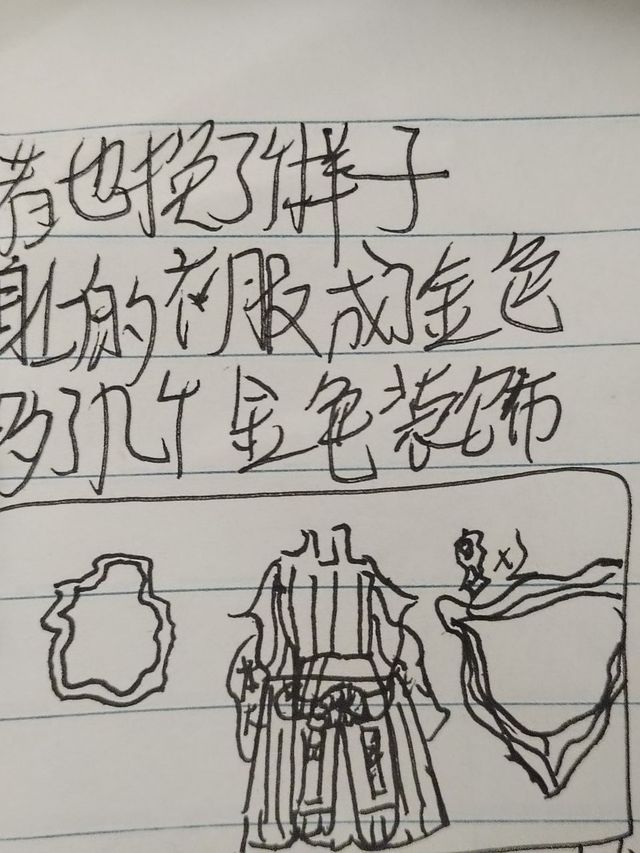 者也换了样子
身上的衣服成金色
多了几个金色装饰
x2